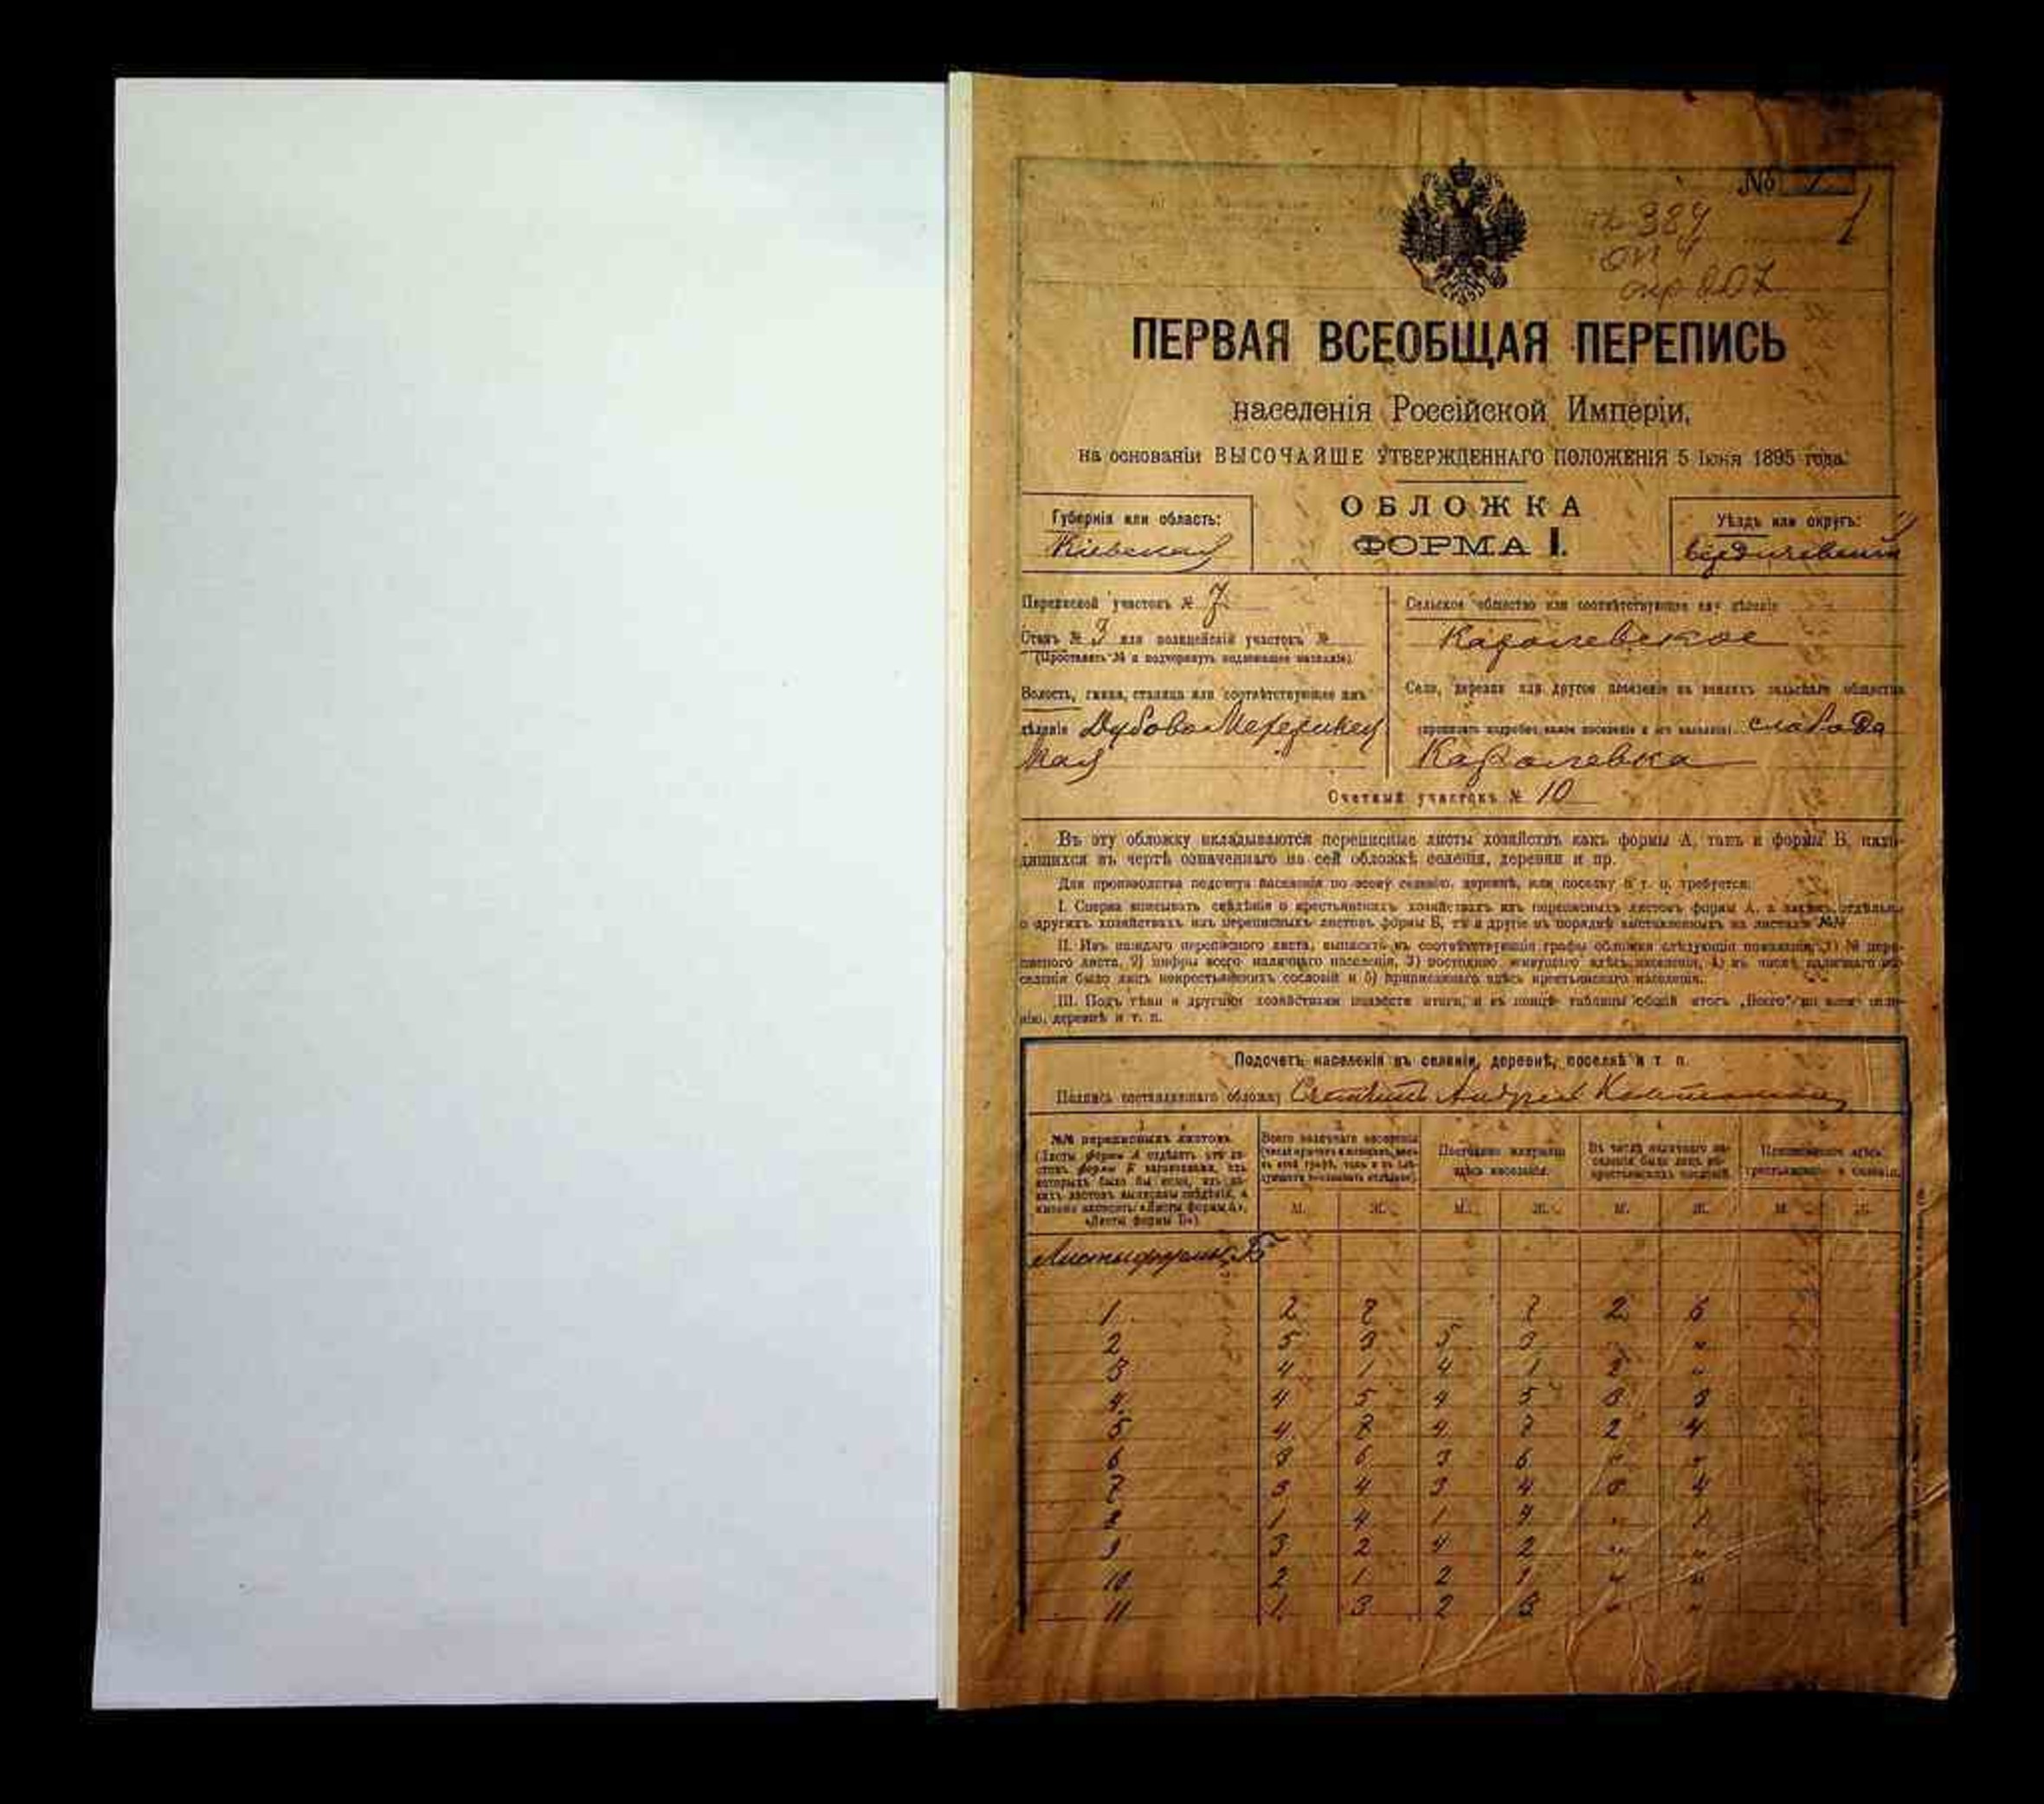 № 1
1
324
оп 4
ПЕРВАЯ ВСЕОБЩАЯ ПЕРЕПИСЬ
населенія Россійской Имперіи,
на основаніи ВЫСОЧАЙШЕ УТВЕРЖДЕННАГО ПОЛОЖЕНІЯ 5 Іюня 1895 года.
ОБЛОЖКА
ФОРМА I.
Губернія или область:
Кіевская
Уѣздъ или округъ:
Бердичевскій
Переписной участокъ № 7
Станъ № 3 или полицейскій участокъ №
(Проставить № и подчеркнуть надлежащее названіе)
Волость, гмина, станица или соотвѣтствующее имъ
дѣленіе Дубово-Махаринец
кая
Сельское общество или соотвѣтствующее ему дѣленіе
Каролевское
Село, деревня или другое поселеніе на земляхъ сельскаго общества
(прописать подробно, какое поселеніе и его названіе) слабода
Каролевка
Счетный участокъ № 10
Въ эту обложку вкладываются переписные листы хозяйствъ какъ формы А, такъ и формы Б, нахо-
дящихся въ чертѣ означеннаго на сей обложкѣ селенія, деревни и пр.
Для производства подсчета населенія по всему селенію, деревнѣ, или поселку и т. п. требуется:
I. Сперва вписывать свѣдѣнія о крестьянскихъ хозяйствахъ изъ переписныхъ листовъ формы А, а затѣмъ, отдѣльно
о другихъ хозяйствахъ изъ переписныхъ листовъ формы Б, тѣ и другіе въ порядкѣ выставленныхъ на листахъ №№
II. Изъ каждаго переписного листа, выписать въ соотвѣтствующія графы обложки слѣдующія показанія: 1) № пере-
писного листа, 2) цифры всего наличнаго населенія, 3) постоянно живущаго здѣсь населенія, 4) въ числѣ наличнаго на-
селенія было лицъ некрестьянскихъ сословій и 5) приписаннаго здѣсь крестьянскаго населенія.
III. Подъ тѣми и другими хозяйствами подвести итоги, и въ концѣ таблицы общій итогъ „Всего“ по всему селе-
нію, деревнѣ и т. п.
Подсчетъ населенія въ селеніи, деревнѣ, поселкѣ и т. п.
Подпись составлявшаго обложку Андрій
1
№№ переписныхъ листовъ
(Листы формы А отдѣлить отъ ли-
стовъ формы Б заголовками, изъ
которыхъ было бы ясно, изъ ка-
кихъ листовъ выписаны свѣдѣнія, а
именно написать: «Листы формы А»,
«Листы формы Б»)
2
Всего наличнаго населенія
3
Постоянно живущаго
здѣсь населенія.
4
Въ числѣ наличнаго на-
селенія было лицъ не-
крестьянскихъ сословій.
5
Приписаннаго здѣсь
крестьянскаго населенія.
М. Ж. М. Ж. М. Ж. М. Ж.
Листы формы Б
1 2 7 7 2 6
2 5 3 5 3 „
3 4 1 4 1 2 „
4 4 5 4 5 3 3
5 4 7 4 7 2 4
6 3 6 3 6 „ „
7 3 4 3 4 3 4
8 1 4 1 4 „ 1
9 3 2 4 2 „ „
10 2 1 2 1 „ „
11 1 3 2 3 „ „